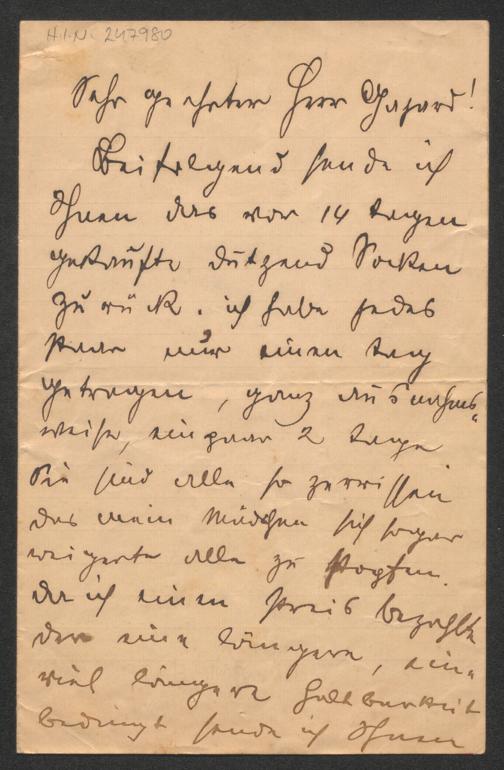 H.I.N. 247980
Sehr geehrter Herr
Beifolgend sende ich
Ihnen das vor 14 tagen
gekaufte dutzend Socken
zurück. ich habe jedes
Paar nur einen tag
getragen, ganz ausnahms-
weise, ein paar 2 tage
Sie sind alle so zerrissen
das mein Mädchen sich sogar
weigerte alle zu stopfen.
da ich einen Preis bezahlte
der eine längere, eine
viel längere Haltbarkeit
bedingt sende ich Ihnen